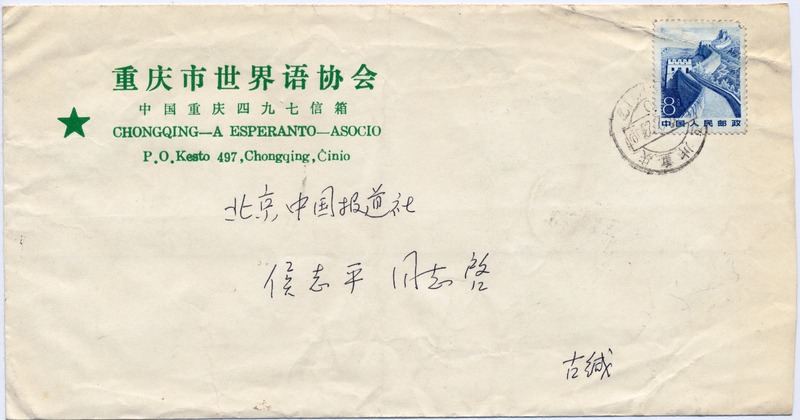 重庆市世界语协会
中国重庆四九七信箱
CHONGQING—A ESPERANTO—ASOCIO
P.O.Kesto 497,Chongqing,Ĉinio
8
中国人民邮政
北京,中国报道社
侯志平 同志 启
古缄